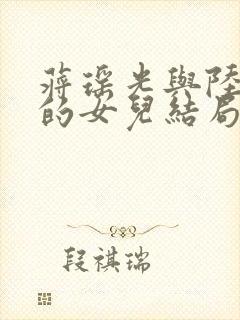 蔣瑶光與陸
的女兒結局
段祺瑞